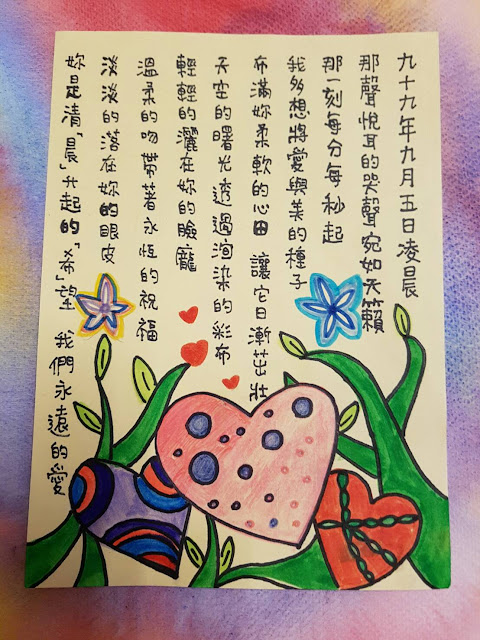 九十九年九月五日凌晨
那聲悅耳的哭聲宛如天籟
那一刻每分每秒起
我多想將愛與美的種子
布滿妳柔軟的心田 讓它日漸茁壯
天空的曙光透過渲染的彩布
輕輕的灑在妳的臉龐
溫柔的吻帶著永恆的祝福
淡淡的落在妳的眼皮
妳是清「晨」升起的「希」望 我們永遠的愛